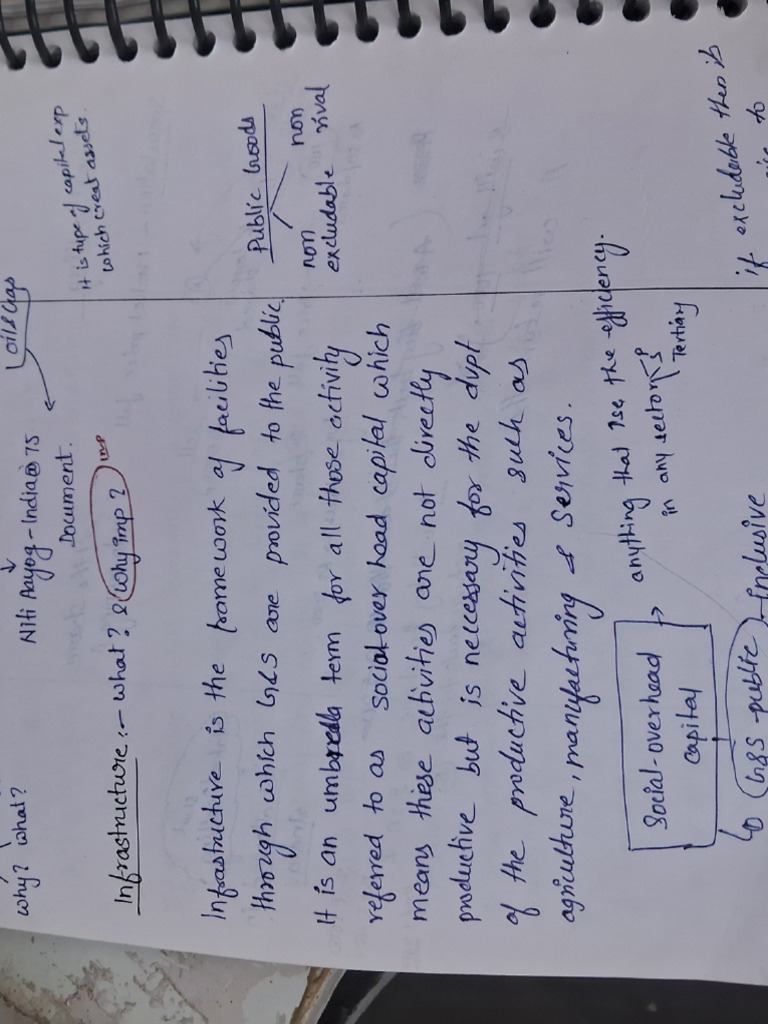 why? what?
Niti Aayog - India@75
Document.
oil & Gas
Infrastructure :- what? & why imp? imp
It is type of capital exp
which creat assets.
Infrastructure is the framework of facilities
through which G&S are provided to the public.
It is an umbrella term for all those activity
referred to as social over head capital which
means these activities are not directly
productive but is neccessary for the dvpt
of the productive activities such as
agriculture, manufacturing & services.
Public Goods
non excludable
non rival
Social-overhead
capital
→ anything that ↑se the efficiency.
in any sector P S Tertiary
G&S - public - Inclusive
if excludable then is